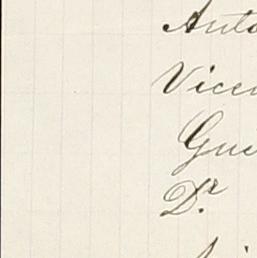 Anto
Vicen
Gue
Dr.